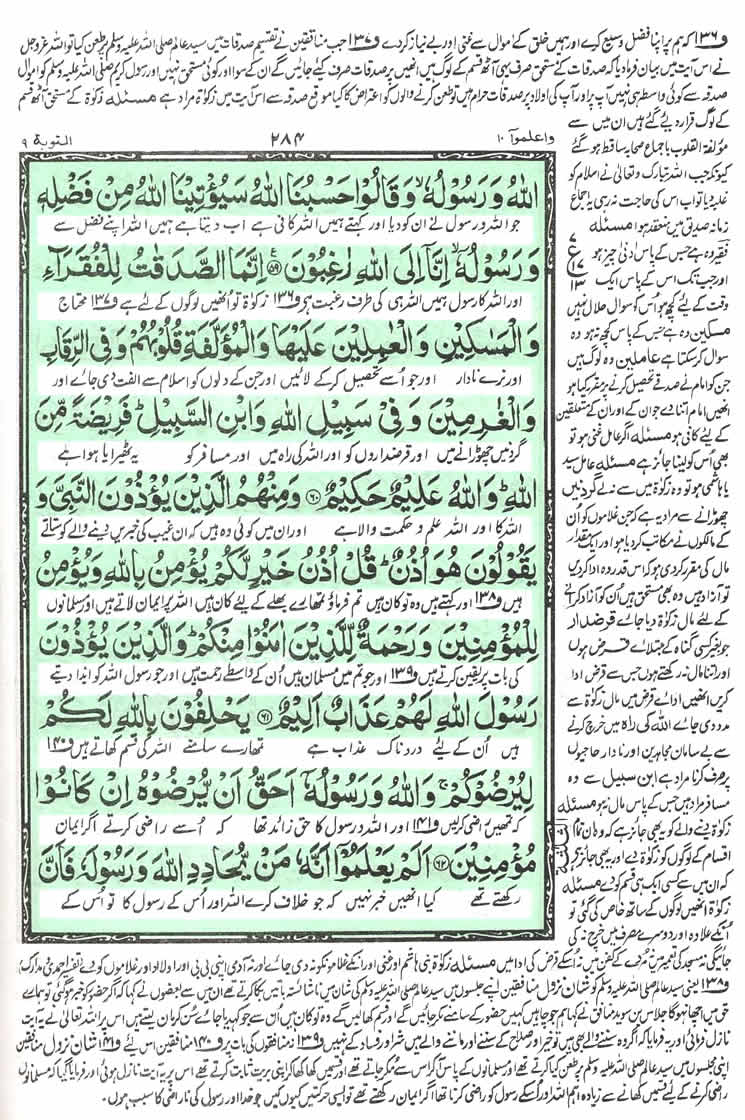 و۱۳۶ کہ ہم پر اپنا فضل وسیع کرے اور ہمیں خلق کے اموال سے غنی اور بے نیاز کر دے و۱۳۷ جب منافقین نے تقسیم صدقات میں سید عالم صلی اللہ علیہ وسلم پر طعن کیا تو اللہ عزوجل
نے اس آیت میں بیان فرما دیا کہ صدقات کے مستحق صرف یہی آٹھ قسم کے لوگ ہیں انھیں پر صدقات صرف کیے جائیں گے ان کے سوا اور کوئی مستحق نہیں اور رسول کریم صلی اللہ علیہ وسلم کو اموال
صدقہ سے کوئی واسطہ ہی نہیں آپ پر اور آپ کی اولاد پر صدقات حرام ہیں تو طعن کرنے والوں کو اعتراض کا کیا موقع صدقہ سے اس آیت میں زکوٰۃ مراد ہے مسئلہ زکوٰۃ کے مستحق آٹھ قسم
کے لوگ قرار دیئے گئے ہیں ان میں سے
مؤلفۃ القلوب باجماع صحابہ ساقط ہو گئے
کیونکہ جب اللہ تبارک وتعالیٰ نے اسلام کو
غلبہ دیا تو اب اس کی حاجت نہ رہی یہ اجماع
زمانہ صدیق میں منعقد ہوا مسئلہ
فقیر وہ ہے جس کے پاس ادنیٰ چیز ہو
اور جب تک اس کے پاس ایک
وقت کے لیے کچھ ہو اس کو سوال حلال نہیں
مسکین وہ ہے جس کے پاس کچھ نہ ہو وہ
سوال کر سکتا ہے عاملین وہ لوگ ہیں
جن کو امام نے صدقے تحصیل کرنے پر مقرر کیا ہو
انھیں امام اتنا دے جو ان کے اور ان کے متعلقین
کے لیے کافی ہو مسئلہ اگر عامل غنی ہو تو
بھی اس کو لینا جائز ہے مسئلہ عامل سید
یا ہاشمی ہو تو وہ زکوٰۃ میں سے نہ لے گردنیں
چھوڑانے سے مراد یہ ہے کہ جن غلاموں کو ان
کے مالکوں نے مکاتب کر دیا ہو اور ایک مقدار
مال کی مقرر کر دی ہو کہ اس قدر وہ ادا کر دیں
تو آزاد ہیں وہ بھی مستحق ہیں ان کو آزاد کرانے
کے لئے مال زکوٰۃ دیا جائے قرضدار
جو بغیر کسی گناہ کے مبتلائے قرض ہوں
اور اتنا مال نہ رکھتے ہوں جس سے قرض ادا
کریں انھیں ادائے قرض میں مال زکوٰۃ سے
مدد دی جائے اللہ کی راہ میں خرچ کرنے
سے بے سامان مجاہدین اور نادار حاجیوں
پر صرف کرنا مراد ہے ابن سبیل سے وہ
مسافر مراد ہیں جس کے پاس مال نہ ہو مسئلہ
زکوٰۃ دینے والے کو یہ بھی جائز ہے کہ وہ ان تمام
اقسام کے لوگوں کو زکوٰۃ دے اور یہ بھی جائز ہے
کہ ان میں سے کسی ایک ہی قسم کو دے مسئلہ
زکوٰۃ انھیں لوگوں کے ساتھ خاص کی گئی تو
انکے علاوہ اور دوسرے مصرف میں خرچ نہ کی
واعلموا ۱۰
۲۸۴
التوبة ۹
اللهُ وَرَسُوْلُهٗ ۙ وَقَالُوْا حَسْبُنَا اللهُ سَيُؤْتِيْنَا اللهُ مِنْ فَضْلِهٖ
جو اللہ و رسول نے ان کو دیا اور کہتے ہمیں اللہ کافی ہے اب دیتا ہے ہمیں اللہ اپنے فضل سے
وَرَسُوْلُهٗۤ ۙ اِنَّاۤ اِلَى اللهِ رٰغِبُوْنَ ﴿۵۹﴾ اِنَّمَا الصَّدَقٰتُ لِلْفُقَرَآءِ
اور اللہ کا رسول ہمیں اللہ ہی کی طرف رغبت ہے و۱۳۶ زکوٰۃ تو انھیں لوگوں کے لیے ہے و۱۳۷ محتاج
وَالْمَسٰكِيْنِ وَالْعٰمِلِيْنَ عَلَيْهَا وَالْمُؤَلَّفَةِ قُلُوْبُهُمْ وَفِى الرِّقَابِ
اور نرے نادار اور جو اسے تحصیل کر کے لائیں اور جن کے دلوں کو اسلام سے الفت دی جائے اور
وَالْغٰرِمِيْنَ وَفِىْ سَبِيْلِ اللهِ وَابْنِ السَّبِيْلِ ؕ فَرِيْضَةً مِّنَ
گردنیں چھوڑانے میں اور قرضداروں کو اور اللہ کی راہ میں اور مسافر کو یہ ٹھہرایا ہوا ہے
اللهِ ؕ وَاللهُ عَلِيْمٌ حَكِيْمٌ ﴿۶۰﴾ وَمِنْهُمُ الَّذِيْنَ يُؤْذُوْنَ النَّبِىَّ وَ
اللہ کا اور اللہ علم و حکمت والا ہے اور ان میں کوئی وہ ہیں کہ ان غیب کی خبریں دینے والے کو ستاتے
يَقُوْلُوْنَ هُوَ اُذُنٌ ؕ قُلْ اُذُنُ خَيْرٍ لَّكُمْ يُؤْمِنُ بِاللهِ وَيُؤْمِنُ
ہیں و۱۳۸ اور کہتے ہیں وہ تو کان ہیں تم فرماؤ تمھارے بھلے کے لیے کان ہیں اللہ پر ایمان لاتے ہیں اور مسلمانوں
لِلْمُؤْمِنِيْنَ وَرَحْمَةٌ لِّلَّذِيْنَ اٰمَنُوْا مِنْكُمْ ؕ وَالَّذِيْنَ يُؤْذُوْنَ
کی بات پر یقین کرتے ہیں و۱۳۹ اور جو تم میں مسلمان ہیں ان کے واسطے رحمت ہیں اور جو رسول اللہ کو ایذا دیتے
رَسُوْلَ اللهِ لَهُمْ عَذَابٌ اَلِيْمٌ ﴿۶۱﴾ يَحْلِفُوْنَ بِاللهِ لَكُمْ
ہیں ان کے لیے دردناک عذاب ہے تمھارے سامنے اللہ کی قسم کھاتے ہیں و۱۴۰
لِيُرْضُوْكُمْ ۚ وَاللهُ وَرَسُوْلُهٗۤ اَحَقُّ اَنْ يُّرْضُوْهُ اِنْ كَانُوْا
کہ تمھیں راضی کر لیں و۱۴۱ اور اللہ و رسول کا حق زائد تھا کہ اسے راضی کرتے اگر ایمان
مُؤْمِنِيْنَ ﴿۶۲﴾ اَلَمْ يَعْلَمُوْۤا اَنَّهٗ مَنْ يُّحَادِدِ اللهَ وَرَسُوْلَهٗ فَاَنَّ
رکھتے تھے کیا انھیں خبر نہیں کہ جو خلاف کرے اللہ اور اس کے رسول کا تو اس کے
جائیگی نہ مسجد کی تعمیر میں نہ مردے کے کفن میں نہ اسکے قرض کی ادا میں مسئلہ زکوٰۃ بنی ہاشم اور غنی اور انکے غلاموں کو نہ دی جائے اور نہ آدمی اپنی بی بی اور اولاد اور غلاموں کو دے تفسیر احمدی مدارک
و۱۳۸ یعنی سید عالم صلی اللہ علیہ وسلم کو شان نزول منافقین اپنے جلسوں میں سید عالم صلی اللہ علیہ وسلم کی شان میں ناشائستہ باتیں بکا کرتے تھے ان میں سے بعضوں نے کہا کہ اگر حضور کو خبر ہو گئی تو ہمارے
حق میں اچھا نہ ہو گا جلاس بن سوید منافق نے کہا ہم جو چاہیں کہیں حضور کے سامنے مکر جائیں گے اور قسم کھا لیں گے وہ تو کان ہیں ان سے جو کہہ دیا جائے سن کر مان لیتے ہیں اس پر اللہ تعالیٰ نے یہ آیت
نازل فرمائی اور یہ فرمایا کہ اگر وہ سننے والے بھی ہیں تو خیر اور صلاح کے سننے اور ماننے والے ہیں شر اور فساد کے نہیں و۱۳۹ نہ منافقوں کی بات پر و۱۴۰ منافقین اس لئے و۱۴۱ شان نزول منافقین
اپنی مجلسوں میں سید عالم صلی اللہ علیہ وسلم پر طعن کیا کرتے تھے اور مسلمانوں کے پاس آ کر اس سے مکر جاتے تھے اور قسمیں کھا کھا کر اپنی بریت ثابت کرتے تھے اس پر یہ آیت نازل ہوئی اور فرمایا گیا کہ مسلمانوں
کو راضی کرنے کے لیے قسمیں کھانے سے زیادہ اہم اللہ اور اسکے رسول کو راضی کرنا تھا اگر ایمان رکھتے تھے تو ایسی حرکتیں کیوں کیں جو خدا اور رسول کی ناراضی کا سبب ہوں۔